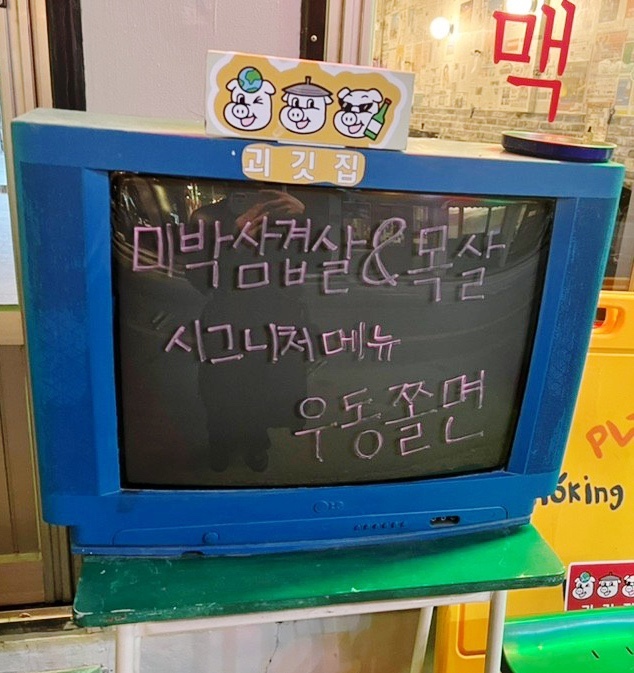 맥
괴깃집
미박삼겹살&목살
시그니처메뉴
우동쫄면